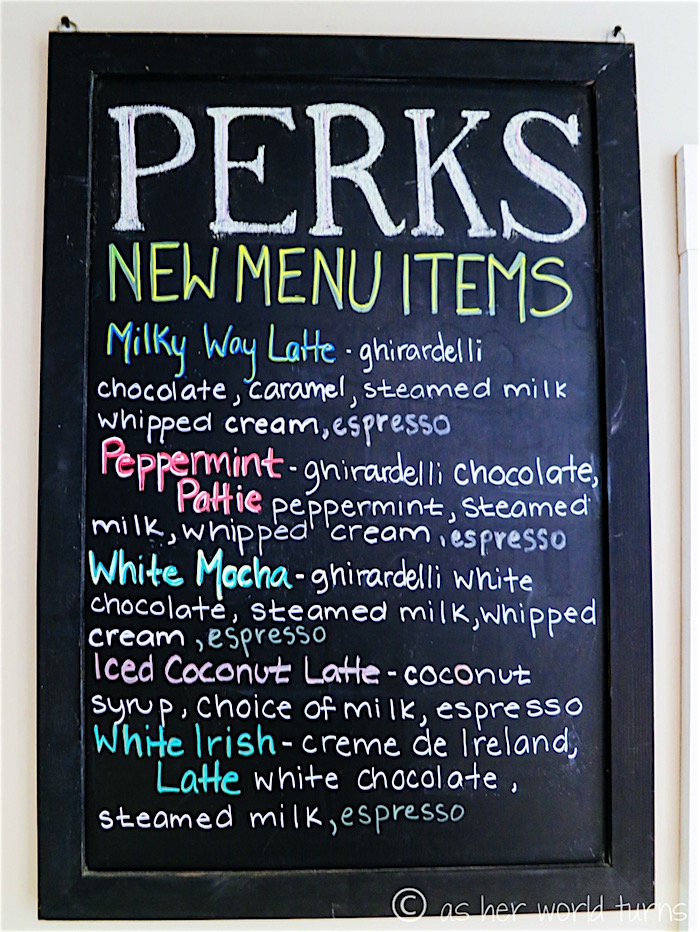 PERKS
NEW MENU ITEMS
Milky Way Latte - ghirardelli
chocolate, caramel, steamed milk
whipped cream, espresso
Peppermint - ghirardelli chocolate,
Pattie peppermint, steamed
milk, whipped cream, espresso
White Mocha - ghirardelli white
chocolate, steamed milk, whipped
cream, espresso
Iced Coconut Latte - coconut
syrup, choice of milk, espresso
White Irish - creme de Ireland,
Latte white chocolate,
steamed milk, espresso
© as her world turns